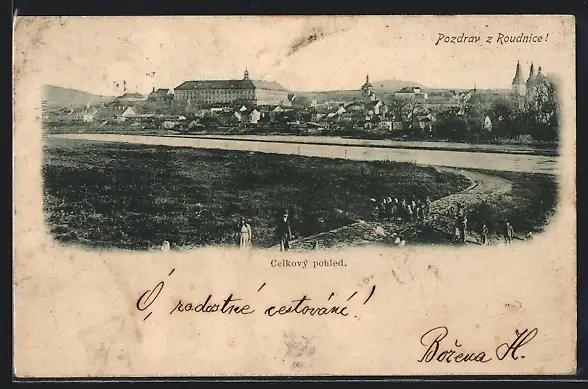 Pozdrav z Roudnice!
Celkový pohled.
Ó, radostné cestování!
Božena H.